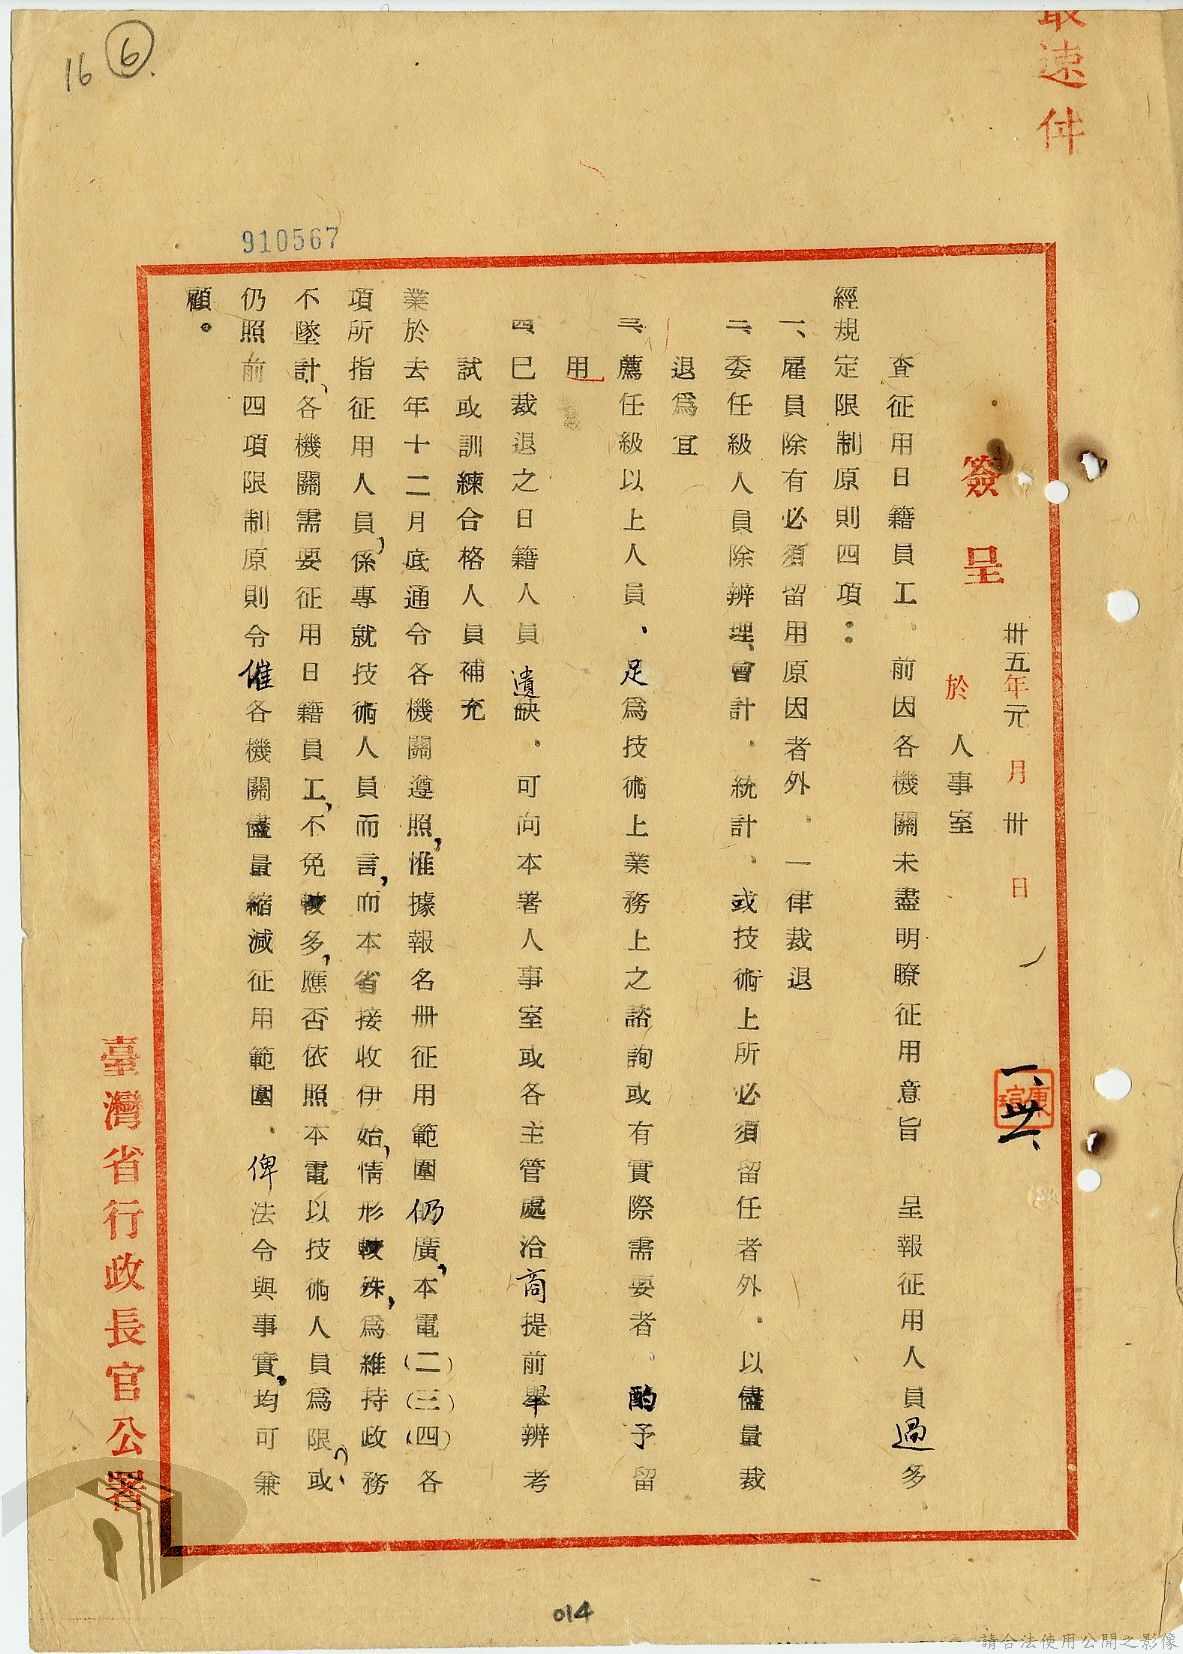 最速件
16 6
910567
簽呈
卅五年元月卅日
於人事室
一、卅一、
查征用日籍員工、前因各機關未盡明瞭征用意旨 呈報征用人員過多
經規定限制原則四項：
一、雇員除有必須留用原因者外．一律裁退
二、委任級人員除辦理、會計．統計、或技術上所必須留任者外．以儘量裁
退爲宜
三、薦任級以上人員、足爲技術上業務上之諮詢或有實際需要者．酌予留
用
四、已裁退之日籍人員遺缺．可向本署人事室或各主管處洽商提前舉辦考
試或訓練合格人員補充
業於去年十二月底通令各機關遵照，惟據報名册征用範圍仍廣，本電(二)(三)(四)各
項所指征用人員，係專就技術人員而言，而本省接收伊始，情形較殊，爲維持政務
不墜計、各機關需要征用日籍員工，不免較多，應否依照本電以技術人員爲限，或
仍照前四項限制原則令催各機關儘量縮減征用範圍．俾法令與事實，均可兼
顧。
臺灣省行政長官公署
014
請合法使用公開之影像